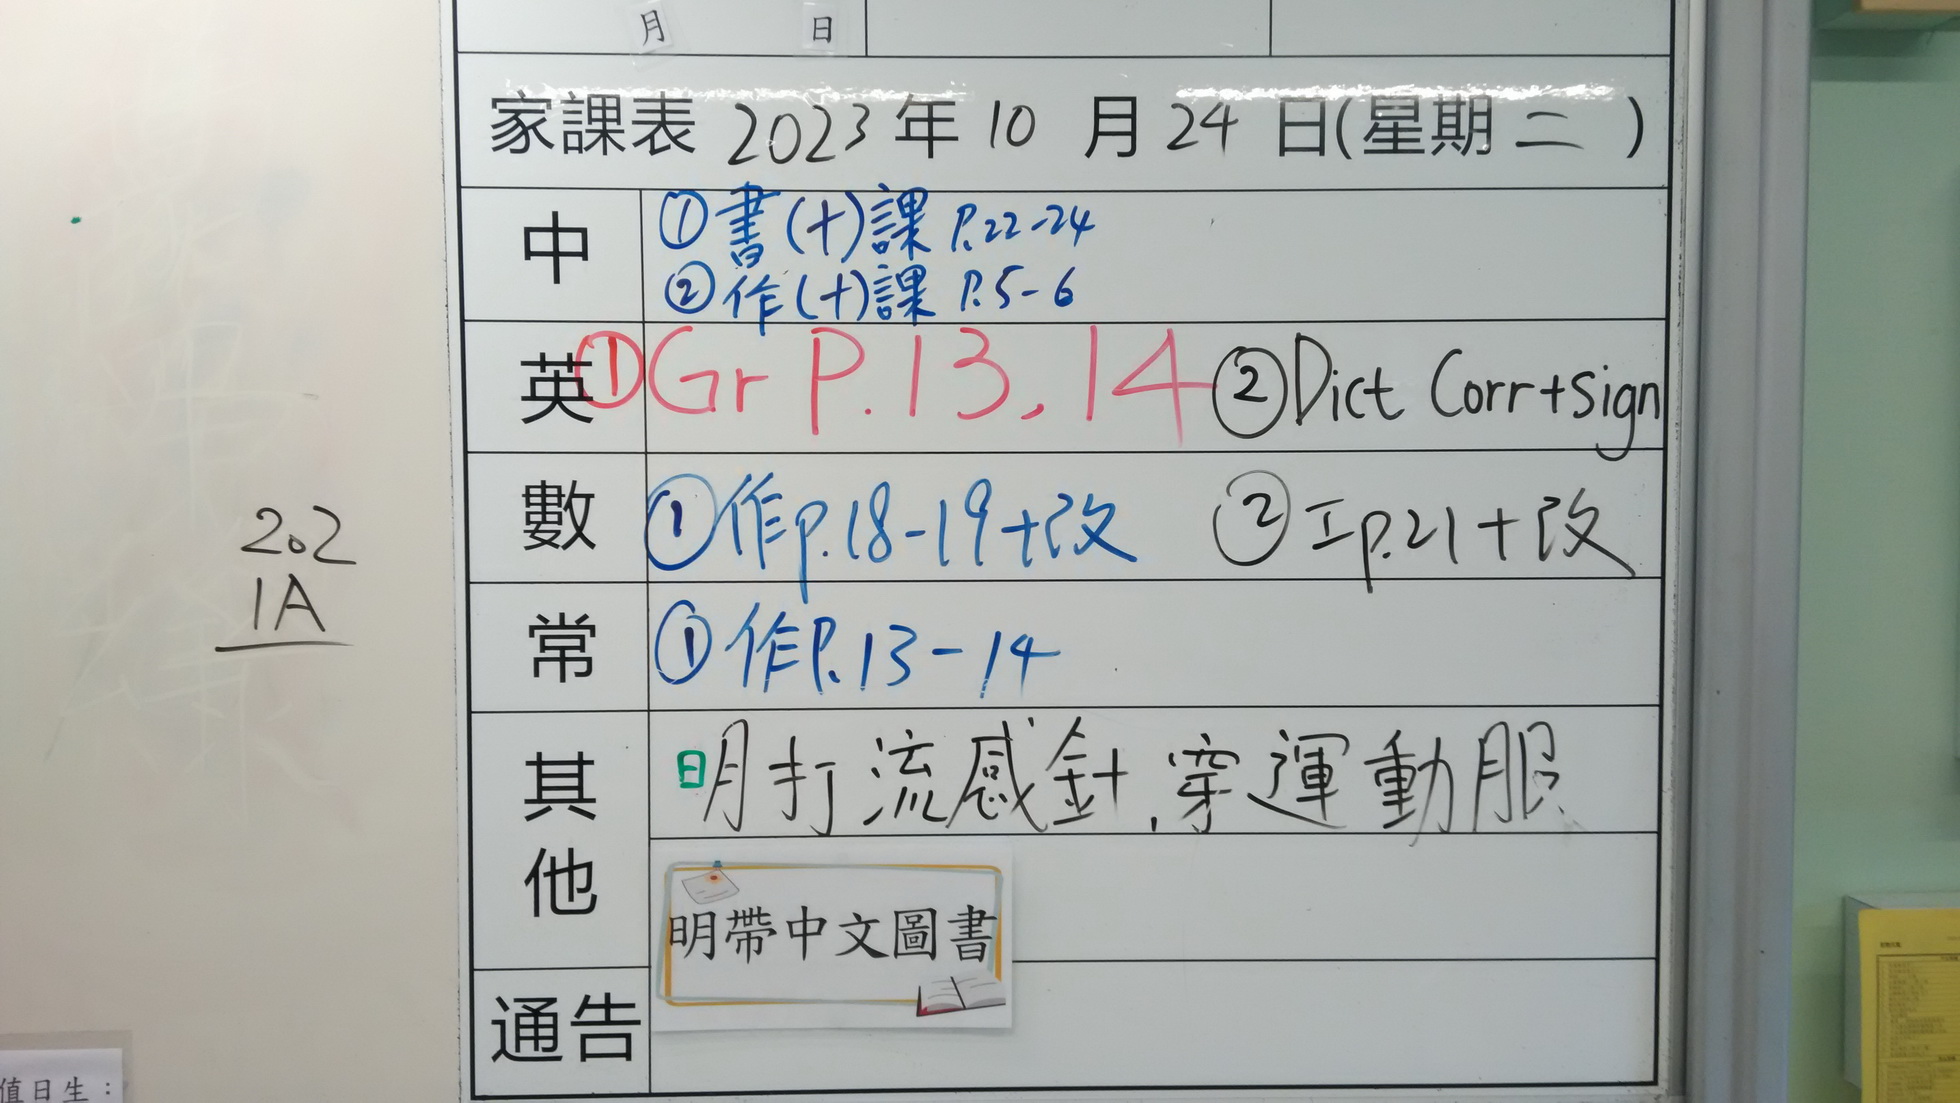 月 日
家課表 2023 年 10 月 24 日(星期 二 )
中
① 書(十)課 P.22-24
② 作(十)課 P.5-6
英 ① Gr P.13, 14 ② Dict Corr+sign
數 ① 作p.18-19+改 ② 工p.21+改
常 ① 作P.13-14
其他
明打流感針,穿運動服
明帶中文圖書
通告
202
1A
值日生：